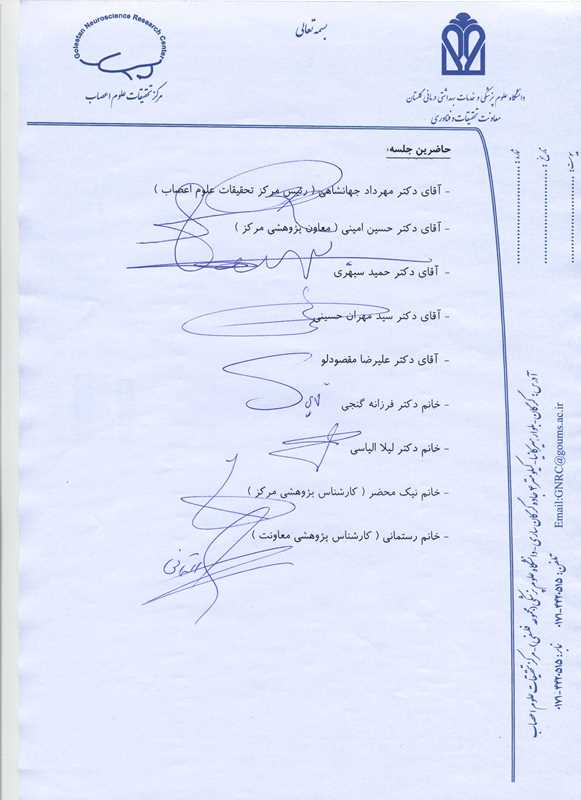 بسمه تعالی
Golestan Neuroscience Research Center
مرکز تحقیقات علوم اعصاب
دانشگاه علوم پزشکی و خدمات بهداشتی درمانی گلستان
معاونت تحقیقات و فناوری
شماره:
تاریخ:
پیوست:
حاضرین جلسه:
- آقای دکتر مهرداد جهانشاهی ( رئیس مرکز تحقیقات علوم اعصاب )
- آقای دکتر حسین امینی ( معاون پژوهشی مرکز )
- آقای دکتر حمید سپهری
- آقای دکتر سید مهران حسینی
- آقای دکتر علیرضا مقصودلو
- خانم دکتر فرزانه گنجی
- خانم دکتر لیلا الیاسی
- خانم نیک محضر ( کارشناس پژوهشی مرکز )
- خانم رستمانی ( کارشناس پژوهشی معاونت )
آدرس: گرگان- بلوار جاده گرگان ساری- دانشگاه علوم پزشکی- مرکز تحقیقات علوم اعصاب
Email:GNRC@goums.ac.ir
تلفن: ۰۱۷۱-۴۴۲۰۵۱۵
نمابر: ۰۱۷۱-۴۴۲۰۵۱۵